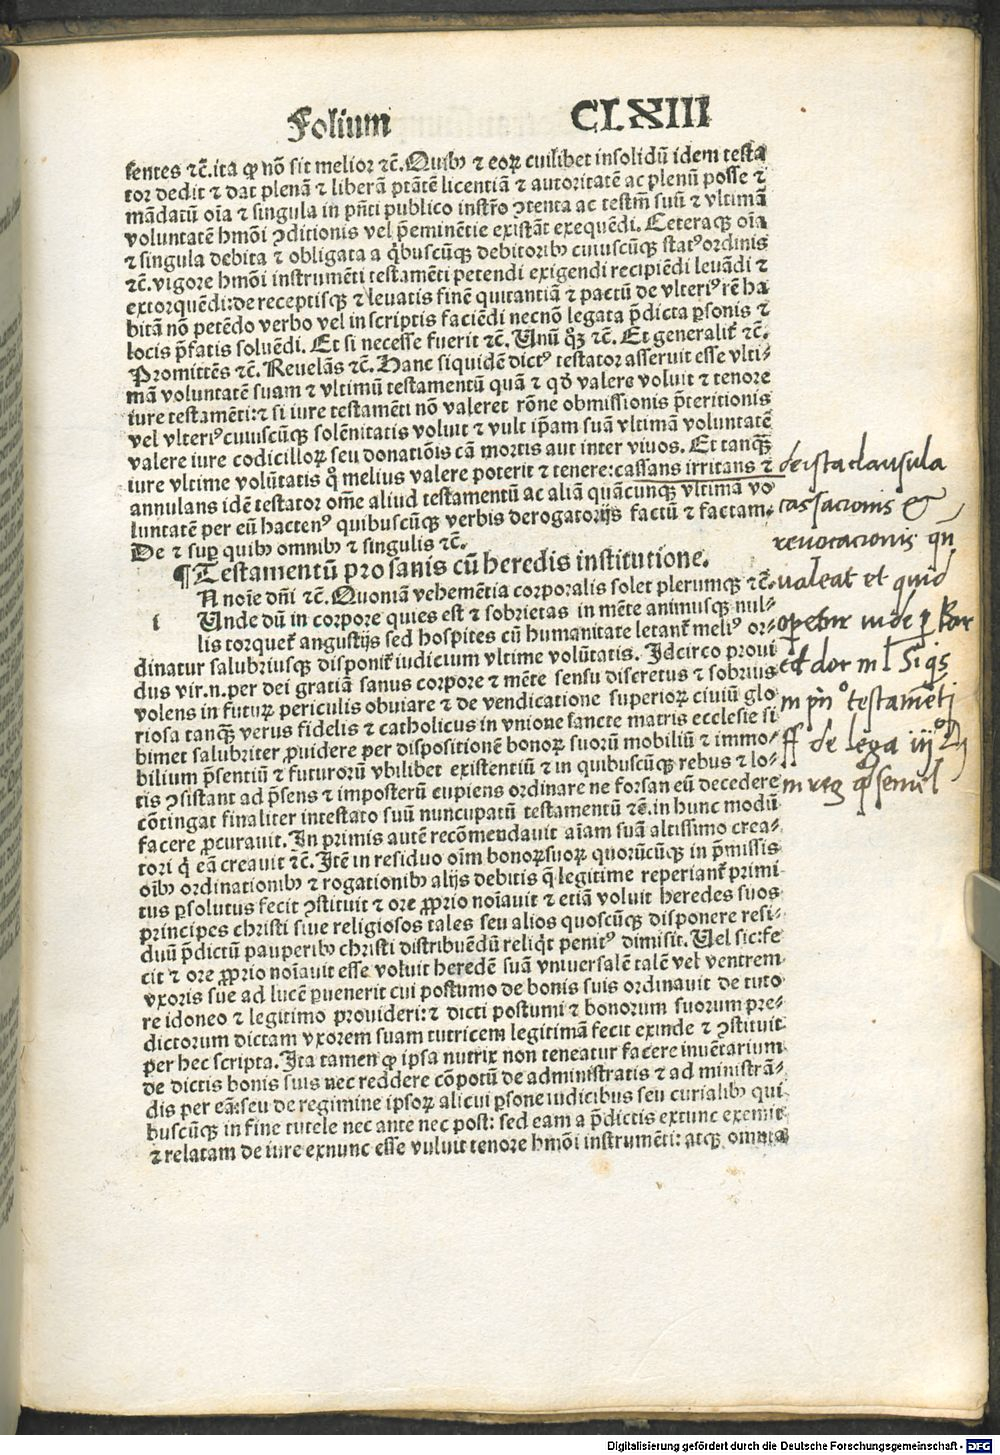 Folium CLXIII
sentes ⁊c̄. ita ꝙ nō sit melior ⁊c̄. Quibꝰ ⁊ eoꝝ cuilibet insolidū idem testa
tor dedit ⁊ dat plenā ⁊ liberā ptātē licentiā ⁊ autoritatē ac plenū posse ⁊
mādatū oīa ⁊ singula in pn̄ti publico instr̄o ꝯtenta ac testm̄ suū ⁊ vltimā
voluntatē hmōi ꝯditionis vel p̄eminētie existāt exequēdi. Ceteraqꝫ oīa
⁊ singula debita ⁊ obligata a qͥbuscūqꝫ debitoribꝰ cuiuscūqꝫ statꝰ ordinis
⁊c̄. vigore hmōi instrumēti testamēti petendi exigendi recipiēdi leuādi ⁊
extorquēdi: de receptisqꝫ ⁊ leuatis finē quitantiā ⁊ pactū de vlteriꝰ rē ha
bitā nō petēdo verbo vel in scriptis faciēdi necnō legata p̄dicta ꝑsonis ⁊
locis p̄fatis soluēdi. Et si necesse fuerit ⁊c̄. Unū qͣꝫ ⁊c̄. Et generalit̄ ⁊c̄.
Promittēs ⁊c̄. Reuelās ⁊c̄. Hanc siquidē dictꝰ testator asseruit esse vlti-
mā voluntatē suam ⁊ vltimū testamentū quā ⁊ qd̄ valere voluit ⁊ tenore
iure testamēti: ⁊ si iure testamēti nō valeret rōne obmissionis p̄teritionis
vel vlteriꝰ cuiuscūqꝫ solēnitatis voluit ⁊ vult ip̄am suā vltimā voluntatē
valere iure codicilloꝝ seu donatiōis cā mortis aut inter viuos. Et tanqꝫ
iure vltime volūtatis qͦ melius valere poterit ⁊ tenere: cassans irritans ⁊
annulans idē testator om̄e aliud testamentū ac aliā quācunqꝫ vltimā vo
luntatē per eū hactenꝰ quibuscūqꝫ verbis derogatorijs factū ⁊ factam.
De ⁊ suꝑ quibꝰ omnibꝰ ⁊ singulis ⁊c̄.
¶ Testamentū pro sanis cū heredis institutione.
A noīe dn̄i ⁊c̄. Quoniā vehemētia corporalis solet plerumqꝫ ⁊c̄.
i Unde dū in corpore quies est ⁊ sobrietas in mēte animusqꝫ nul-
lis torquet̄ angustijs sed hospites cū humanitate letant̄ meliꝰ or-
dinatur salubriusqꝫ disponit̄ iudicium vltime volūtatis. Idcirco proui
dus vir .n. per dei gratiā sanus corpore ⁊ mēte sensu discretus ⁊ sobrius
volens in futuꝝ periculis obuiare ⁊ de vendicatione superioꝝ ciuiū glo
riosa tanqꝫ verus fidelis ⁊ catholicus in vnione sancte matris ecclesie si
bimet salubriter ꝓuidere per dispositionē bonoꝝ suorū mobiliū ⁊ immo-
bilium p̄sentiū ⁊ futurorū vbilibet existentiū ⁊ in quibuscūqꝫ rebus ⁊ lo-
cis ꝯsistant ad p̄sens ⁊ imposterū cupiens ordinare ne forsan eū decedere
cōtingat finaliter intestato suū nuncupatū testamentū ⁊c̄. in hunc modū
facere ꝓcurauit. In primis autē recōmendauit aīam suā altissimo crea-
tori qͥ eā creauit ⁊c̄. Itē in residuo oīm bonoꝝ suoꝝ quorūcūqꝫ in p̄missis
oībꝰ ordinationibꝰ ⁊ rogationibꝰ alijs debitis q̄ legitime reperiant̄ primi
tus ꝑsolutus fecit ꝯstituit ⁊ ore ꝓprio noīauit ⁊ etiā voluit heredes suos
principes christi siue religiosos tales seu alios quoscūqꝫ disponere resi-
duū p̄dictū pauperibꝰ christi distribuēdū reliqͥt penitꝰ dimisit. Uel sic: fe
cit ⁊ ore ꝓprio noīauit esse voluit heredē suā vniuersalē talē vel ventrem
vxoris sue ad lucē ꝑuenerit cui postumo de bonis suis ordinauit de tuto
re idoneo ⁊ legitimo prouideri: ⁊ dicti postumi ⁊ bonorum suorum pre-
dictorum dictam vxorem suam tutricem legitimā fecit exinde ⁊ ꝯstituit
per hec scripta. Ita tamen ꝙ ipsa nutrix non teneatur facere inuētarium
de dictis bonis suis nec reddere cōpotū de administratis ⁊ ad ministrā-
dis per eā: seu de regimine ipsoꝝ alicui ꝑsone iudicibus seu curialibꝰ qui
buscūqꝫ in fine tutele nec ante nec post: sed eam a p̄dictis extunc exemit
⁊ relatam de iure exnunc esse vuluit tenore hmōi instrumēti: atqꝫ omnia
de ista clausula
cassacionis et
reuocacionis qn̄
valeat et quid
operetur vide ꝑ Bar
et dor in l. Si qͥs
in pn̄ᵒ testamēti
ff de lega iij
Digitalisierung gefördert durch die Deutsche Forschungsgemeinschaft - DFG